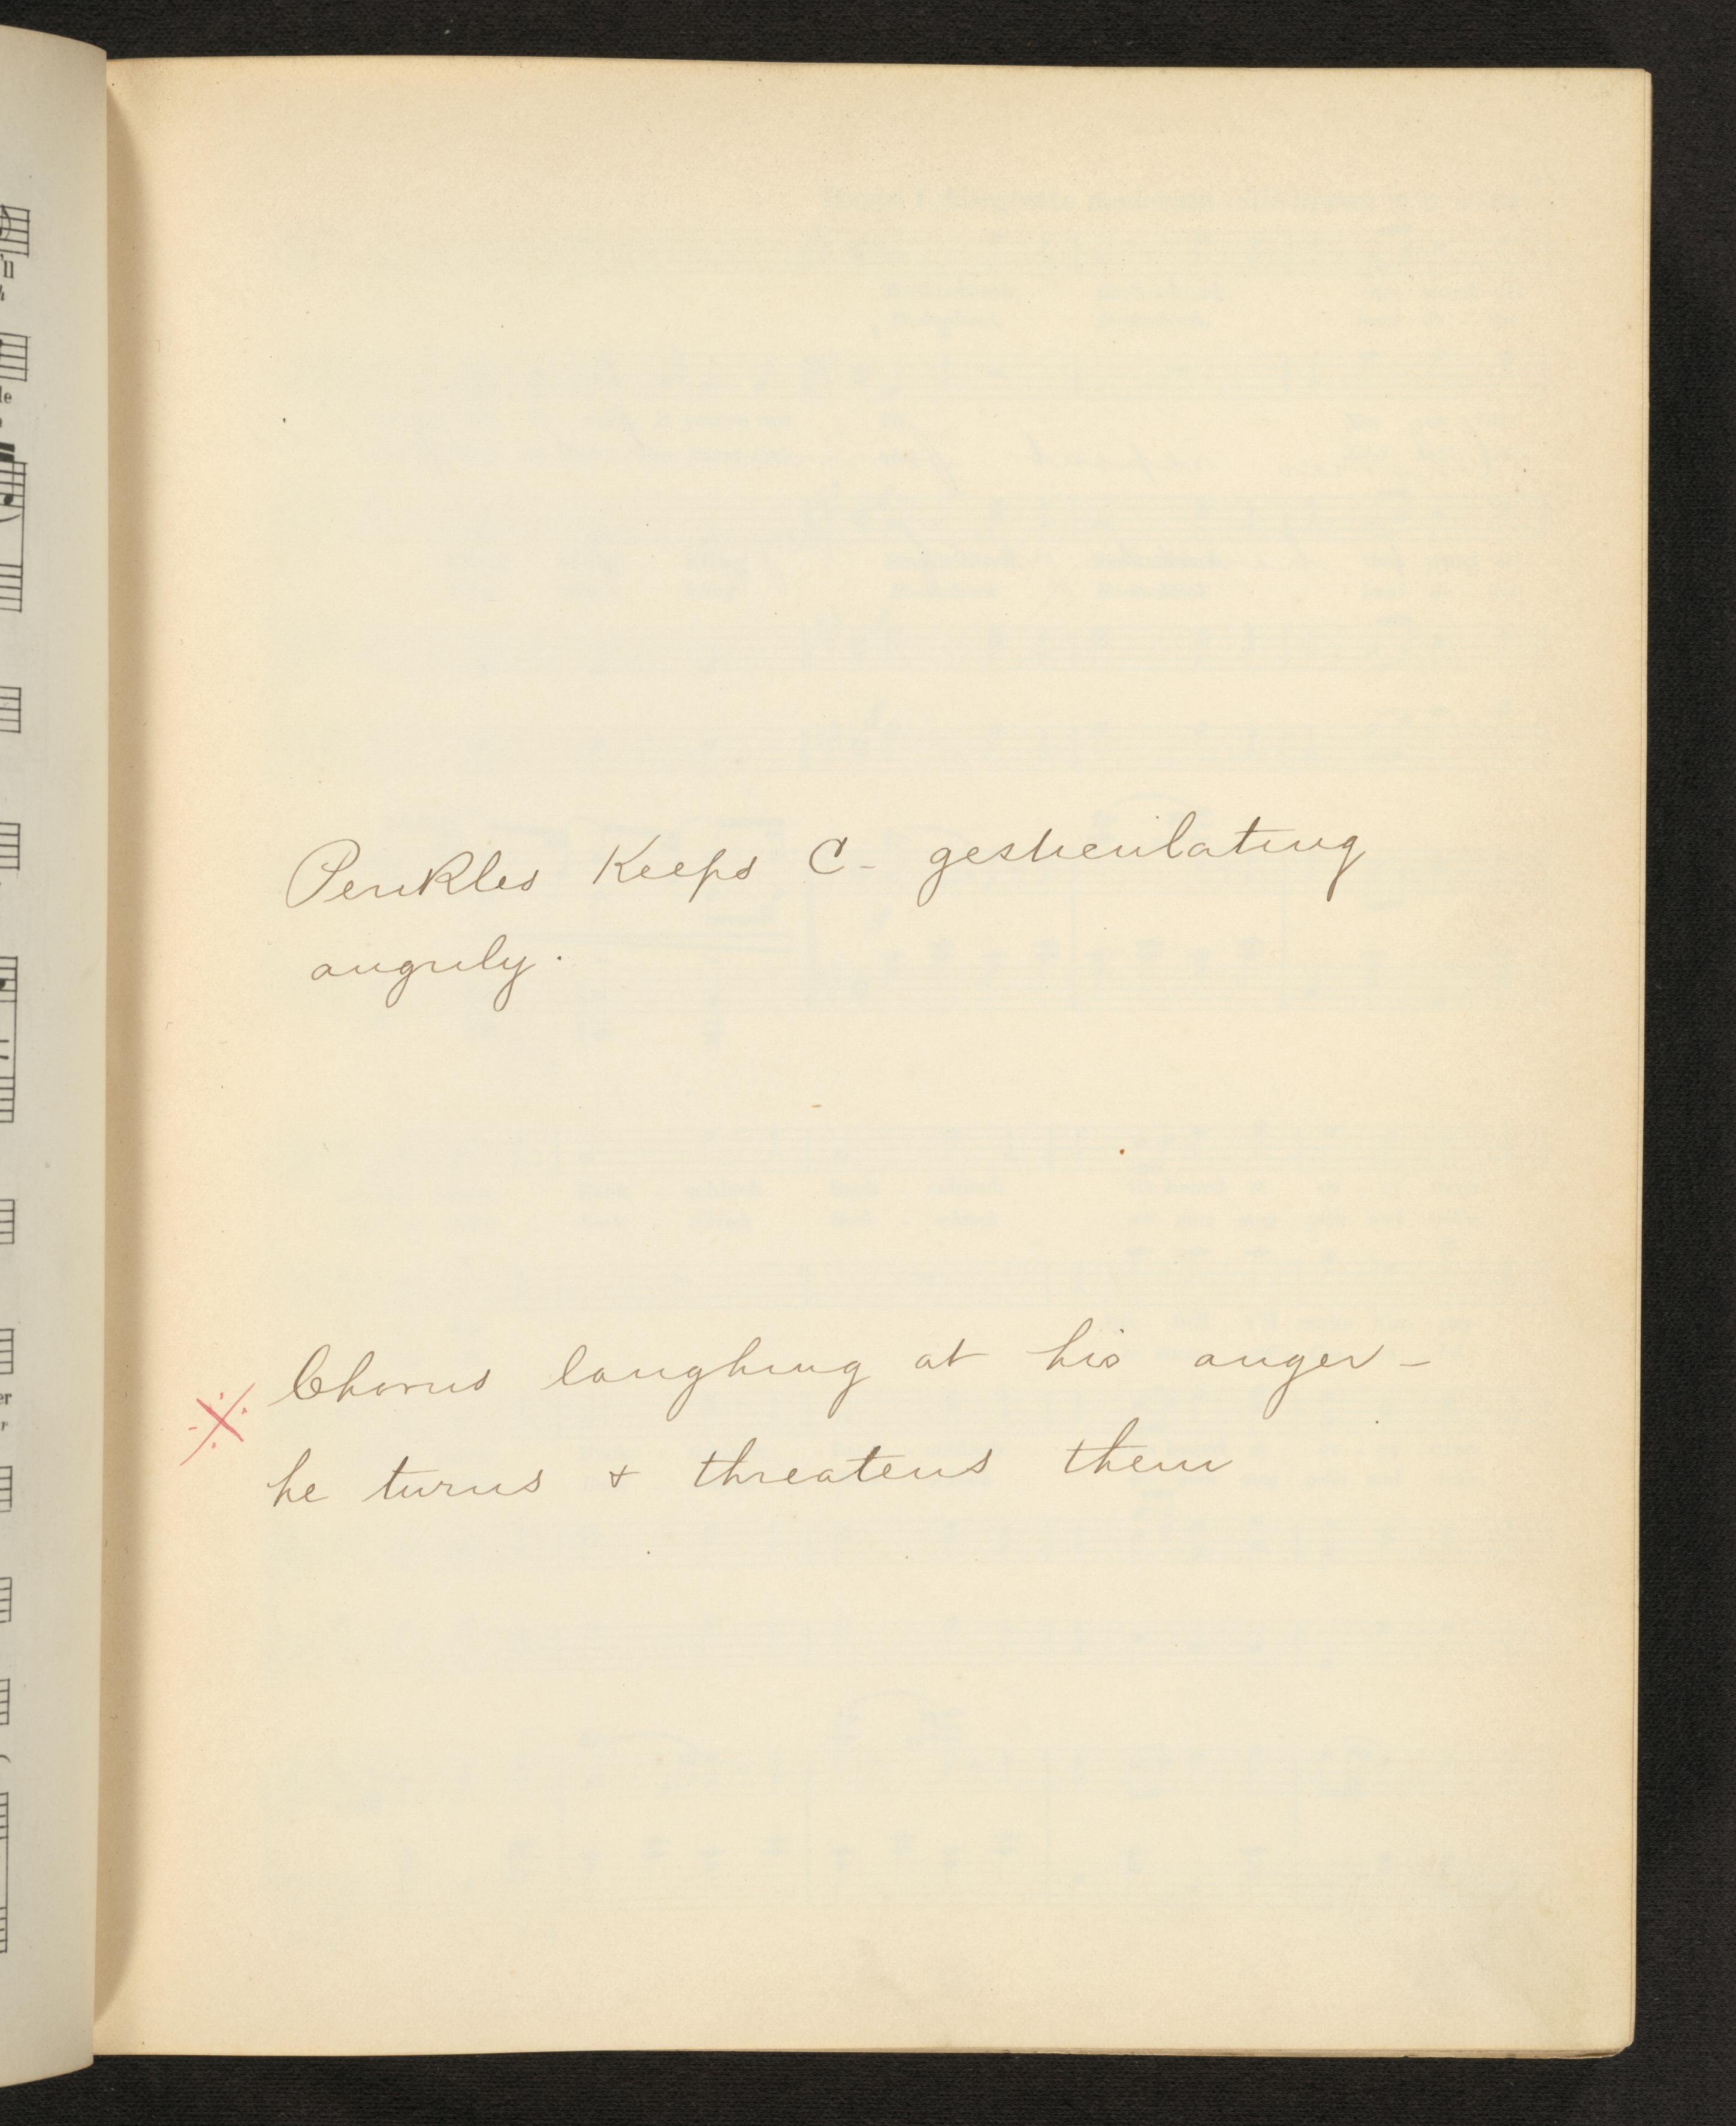 'll
le
Perikles Keeps C - gesticulating
angrily.
er
r
Chorus laughing at his anger -
he turns + threatens them